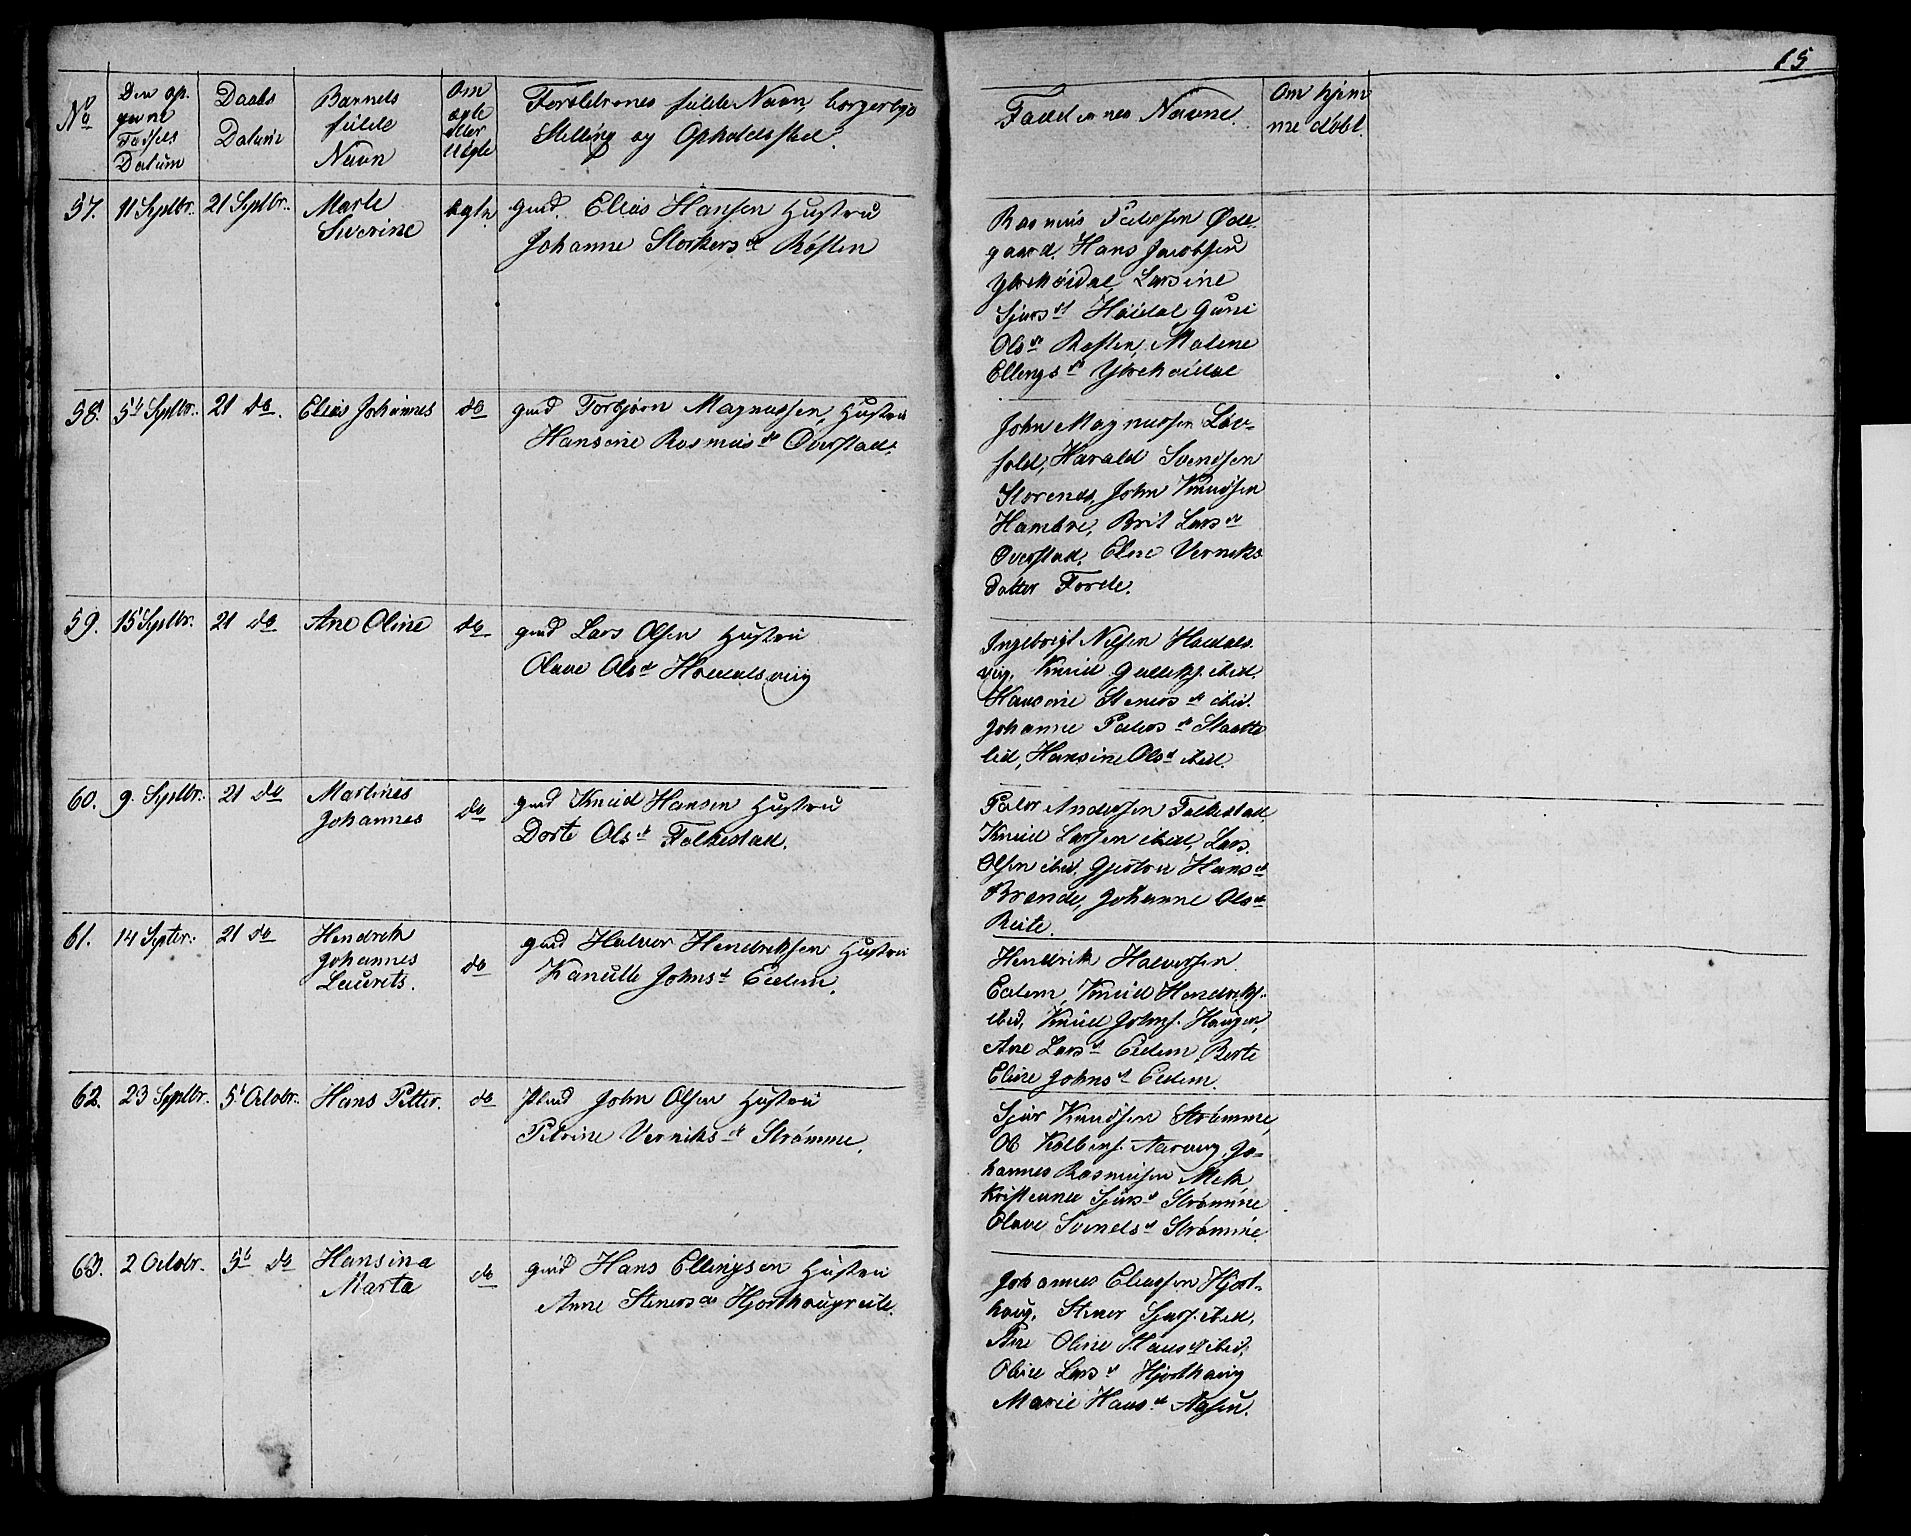 15
No
Den op-
givne
Fødsels
Datum
Daabs
Datum
Barnets
fulde
Navn
Om
ægte
eller
Uægte
Forældrenes fulde Navn, borgerlige
Stilling og Opholdssted.
Faddernes Navne.
Om hjem
me døbt.
57. 11 Septbr. 21 Septbr. Marte
Siverine
ægte
gmd. Elias Hansen Hustru
Johanne Storkersdt Røsten
Rasmus Petersen Øde-
gaard. Hans Jacobsen
Ytrehøidal, Larsine
Sjursdt Høidal Guni
Olsdt Røsten, Malene
Ellingsdt Ytrehøidal
58. 5t Septbr. 21 do. Elias Johannes do gmd Torbjørn Magnussen, Hustru
Hansine Rasmusdt Overstad.
John Magnussen Løv-
fold, Harald Svendsen
Storenes, John Knudsen
Hambre, Brit Larsdt
Overstad. Eline Verniks
Datter Forde.
59. 15 Septbr. 21 do Ane Oline do gmd Lars Olsen Hustru
Olave Olsdt Høidalsviig
Ingebrigt Nilsen Høidals
viig, Knud Gulliks. ibid.
Hansine Stenersdt ibid.
Johanne Petersdt Slaatte
lid, Hansine Olsdt ibid.
60. 9. Septbr. 21 do Martinus
Johannes
do
gmd Knud Hansen Hustru
Dorte Olsdt Folkestad.
Peter Andersen Folkestad
Knud Larsen ibid, Lars
Olsen ibid. Gjertru Hansdt
Brende, Johanne Olsdt
Reite.
61. 14 Septer. 21 do Hendrik
Johannes
Laurits.
do
gmd Halvor Hendriksen Hustru
Kanutte Johnsdt Eidem.
Hendrik Halversen
Eidem, Knud Hendriks.
ibid, Knud Johns. Haugen,
Ane Larsdt Eidem, Berte
Eline Johnsdt Eidem.
62. 23 Septbr. 5t Octobr. Hans Petter. do Pmd John Olsen Hustru
Petrine Verniksdt Strømme.
Sjur Knudsen Strømme,
Ole Kolbens. Aarviig. Jo-
hannes Rasmusen Melk,
Kristenne Sjursdt Strømme
Olave Svendsdt Strømme.
63. 2 Octobr. 5t do Hansina
Marta
do
gmd Hans Ellingsen Hustru
Anne Stenersdt Hjorthaugreite.
Johannes Eliassen Hjort-
haug, Stener Sjurs. ibid,
Ane Oline Hansdt ibid,
Oline Larsdt Hjorthaug
Marie Hansdt Aasen.